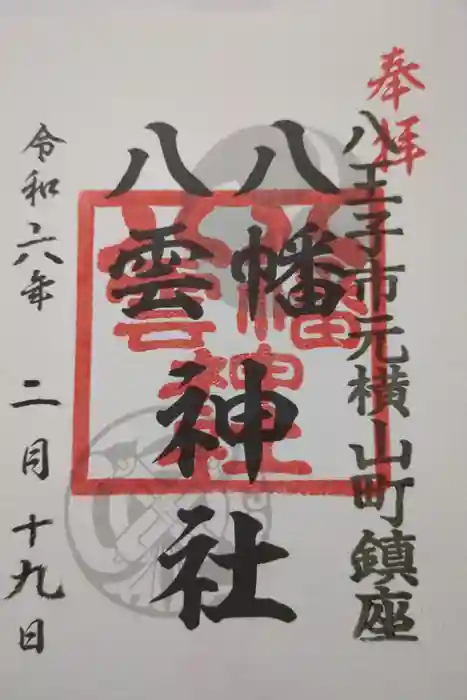 奉拝
八王子市元横山町鎮座
八幡
八雲
神社
八幡
八雲
神社
令和六年 二月十九日